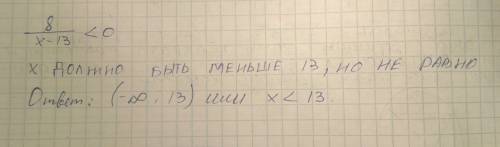 8/(x-13) < 0
x должно быть меньше 13, но не равно
Ответ: (-∞, 13) или x < 13.